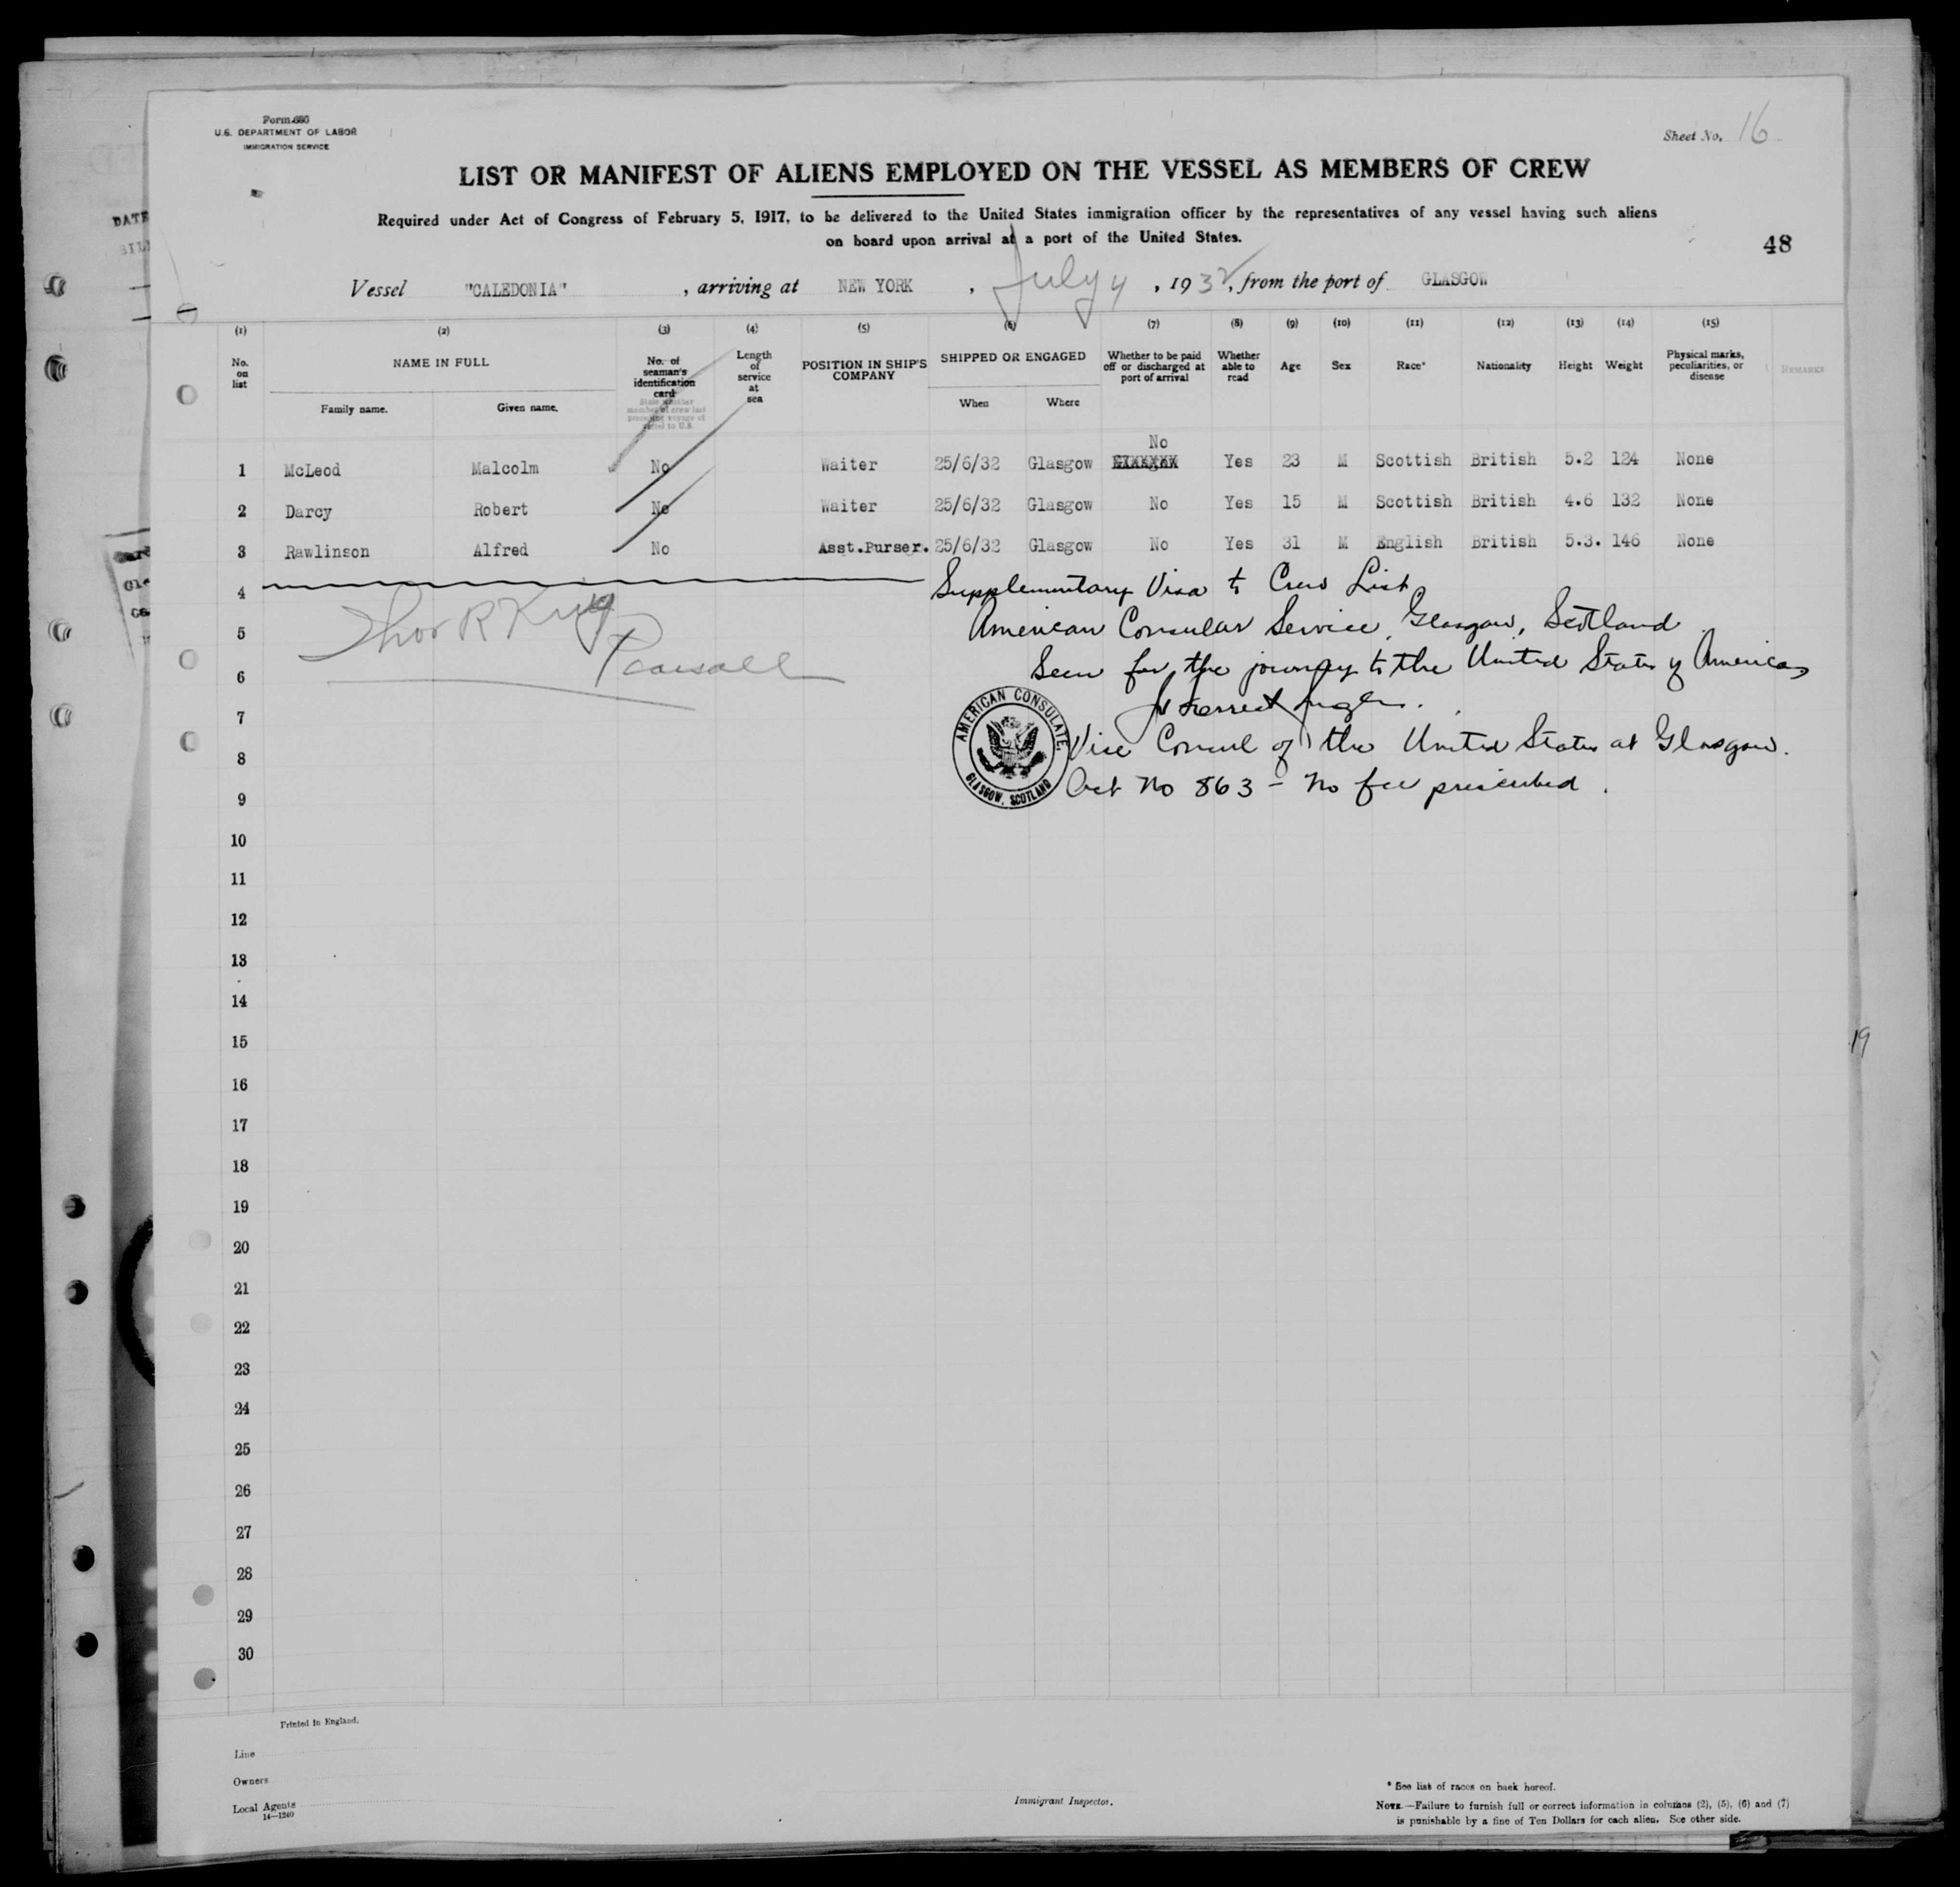 Form 686
U.S. DEPARTMENT OF LABOR
IMMIGRATION SERVICE
Sheet No. 16
LIST OR MANIFEST OF ALIENS EMPLOYED ON THE VESSEL AS MEMBERS OF CREW
Required under Act of Congress of February 5, 1917, to be delivered to the United States immigration officer by the representatives of any vessel having such aliens
on board upon arrival at a port of the United States.
48
Vessel "CALEDONIA" , arriving at NEW YORK , July 4 , 1932, from the port of GLASGOW
(1) (2) (3) (4) (5) (6) (7) (8) (9) (10) (11) (12) (13) (14) (15)
No. on list
NAME IN FULL
Family name. Given name.
No. of seaman's identification card
State whether member of crew last preceding voyage of vessel to U.S.
Length of service at sea
POSITION IN SHIP'S COMPANY
SHIPPED OR ENGAGED
When Where
Whether to be paid off or discharged at port of arrival
Whether able to read
Age
Sex
Race*
Nationality
Height
Weight
Physical marks, peculiarities, or disease
REMARKS
No
1 McLeod Malcolm No Waiter 25/6/32 Glasgow Yes 23 M Scottish British 5.2 124 None
2 Darcy Robert No Waiter 25/6/32 Glasgow No Yes 15 M Scottish British 4.6 132 None
3 Rawlinson Alfred No Asst.Purser. 25/6/32 Glasgow No Yes 31 M English British 5.3. 146 None
4 Supplementary Visa to Crew List
5 Thor R King American Consular Service, Glasgow, Scotland
6 Pearsall Seen for the journey to the United States of America
7
8 Vice Consul of the United States at Glasgow.
9 Act No 863 - No fee prescribed.
AMERICAN CONSULATE, GLASGOW, SCOTLAND
10
11
12
13
14
15
16
17
18
19
20
21
22
23
24
25
26
27
28
29
30
19
Printed in England.
Line
Owners
Local Agents
14-1240
Immigrant Inspector.
* See list of races on back hereof.
NOTE.—Failure to furnish full or correct information in columns (2), (5), (6) and (7)
is punishable by a fine of Ten Dollars for each alien. See other side.